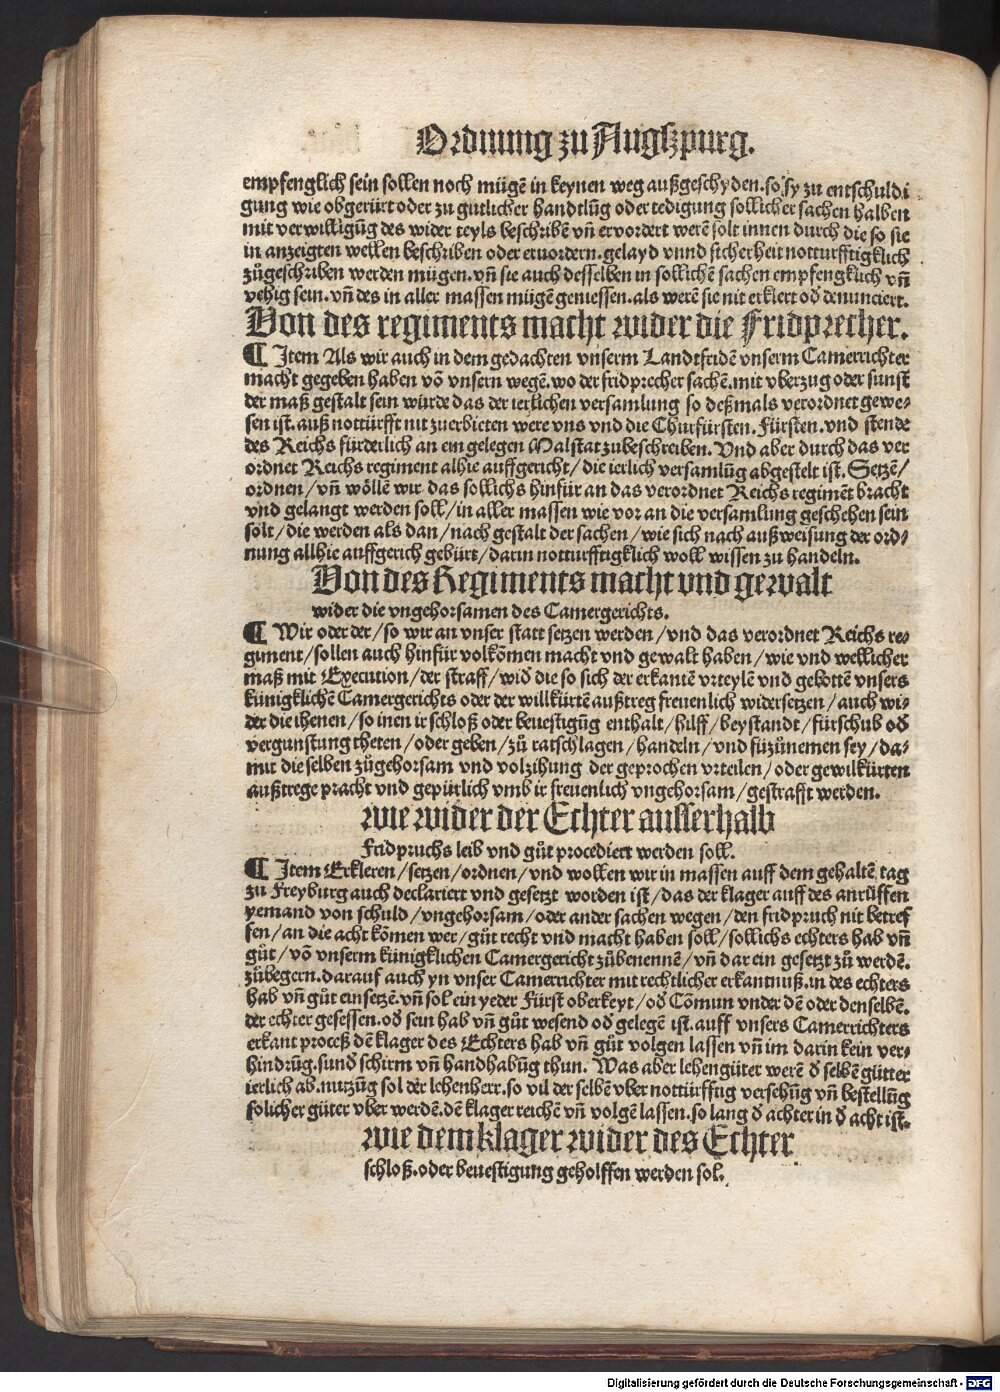 Ordnung zu Augszpurg.
empfenglich sein sollen noch mügē in keynen weg außgeschyden. so sy zu entschuldi
gung wie obgerürt oder zu gutlicher handtlūg oder tedigung sollicher sachen halben
mit verwilligūg des wider teyls beschribē vñ ervordert werē solt innen durch die so sie
in anzeigten wellen beschriben oder eruordern. gelayd vnnd sicherheit notturfftigklich
zůgeschriben werden mügen. vñ sie auch desselben in sollichē sachen empfengklich vñ
vehig sein. vñ des in aller massen mügē geniessen. als werē sie nit erklert oď denunciert.
Von des regiments macht wider die Fridprecher.
¶ Item Als wir auch in dem gedachten vnserm Landtfridē vnserm Camerrichter
macht gegeben haben vō vnsern wegē. wo der fridprecher sachē. mit vberzug oder sunst
der maß gestalt sein würde das der ierlichen versamlung so deßmals verordnet gewe⸗
sen ist. auß nottürfft nit zuerbieten were vns vnd die Churfürsten. Fürsten. vnd stende
des Reichs fürderlich an ein gelegen Malstat zubeschreiben. Vnd aber durch das ver
ordnet Reichs regiment alhie auffgericht / die ierlich versamlūg abgestelt ist. Setzē /
ordnen / vñ wöllē wir das sollichs hinfür an das verordnet Reichs regimēt bracht
vnd gelangt werden soll / in aller massen wie vor an die versamlung geschehen sein
solt / die werden als dan / nach gestalt der sachen / wie sich nach außweisung der ord⸗
nung allhie auffgerich gebürt / darin notturfftigklich woll wissen zu handeln.
Von des Regiments macht vnd gewalt
wider die vngehorsamen des Camergerichts.
¶ Wir oder der / so wir an vnser statt setzen werden / vnd das verordnet Reichs re⸗
giment / sollen auch hinfür volkōmen macht vnd gewalt haben / wie vnd wellicher
maß mit Execution / der straff / wiď die so sich der erkantē vrteylē vnd gebotten vnsers
künigklichē Camergerichts oder der willkürtē außtreg freuenlich widersetzen / auch wi⸗
der die ihenen / so inen ir schloß oder beuestigūg enthalt / hilff / beystandt / fürschub oď
vergunstung theten / oder geben / zů ratschlagen / handeln / vnd fůzůnemen sey / da⸗
mit die selben zůgehorsam vnd volzihung der geprochen vrteilen / oder gewilkürten
außtrege pracht vnd gepürlich vmb ir freuenlich vngehorsam / gestrafft werden.
wie wider der Echter ausserhalb
Fridpruchs leib vnd gůt procediert werden soll.
¶ Item Erkleren / setzen / ordnen / vnd wollen wir in massen auff dem gehaltē tag
zu Freyburg auch declariert vnd gesetzt worden ist / das der klager auff des anrůffen
yemand von schuld / vngehorsam / oder ander sachen wegen / den fridpruch nit betref
fen / an die acht kōmen wer / gůt recht vnd macht haben soll / sollichs echters hab vñ
gůt / vō vnserm künigklichen Camergericht zůbenennē / vñ dar ein gesetzt zů werdē.
zůbegern. darauf auch yn vnser Camerrichter mit rechtlicher erkantnuß. in des echters
hab vñ gůt einsetzē. vñ sol ein yeder Fürst oberkeyt / oď Cōmun vnder dē oder denselbē.
der echter gesessen. oď sein hab vñ gůt wesend oď gelegē ist. auff vnsers Camerrichters
erkant proceß dē klager des Echters hab vñ gůt volgen lassen vñ im darin kein ver⸗
hindrūg. sunď schirm vñ handhabūg thun. Was aber lehengüter werē ď selbē gütter
ierlich ab. nutzūg sol der lehenherr. so vil der selbē vber nottürfftig versehūg vñ bestellūg
solicher güter vber werdē. dē klager reichē vñ volgē lassen. so lang ď achter in ď acht ist.
wie dem klager wider des Echter
schloß. oder beuestigung geholffen werden sol.
Digitalisierung gefördert durch die Deutsche Forschungsgemeinschaft - DFG